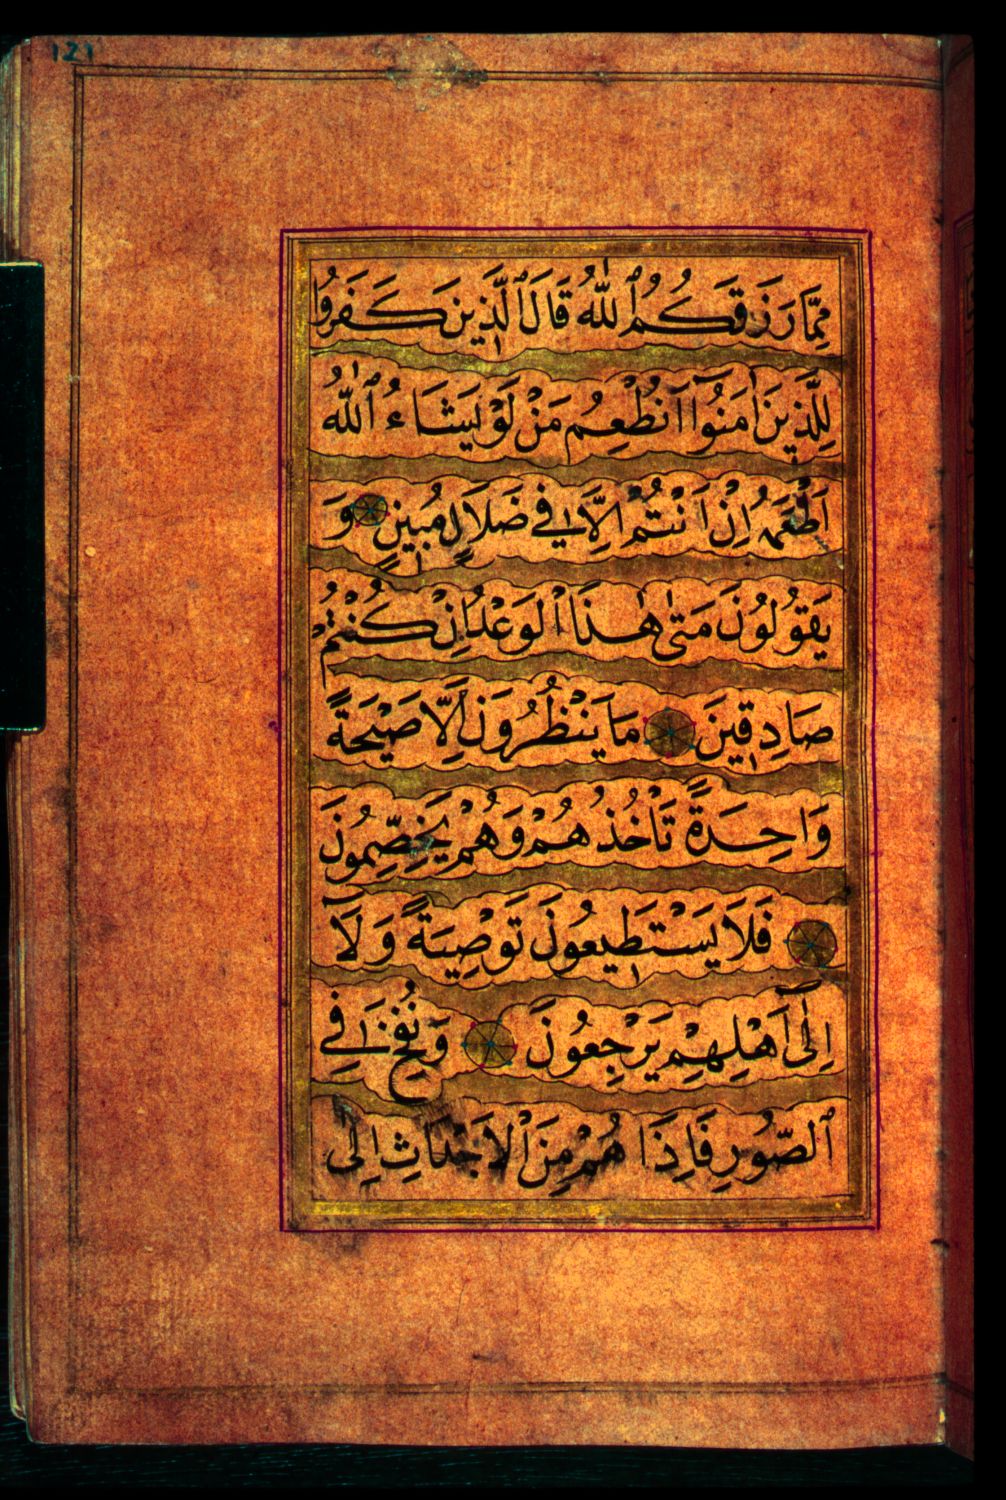 121
مِمَّا رَزَقَكُمُ ٱللّٰهُ قَالَ ٱلَّذِينَ كَفَرُوا
لِلَّذِينَ اٰمَنُوٓا اَنُطْعِمُ مَنْ لَوْ يَشَاءُ ٱللّٰهُ
اَطْعَمَهُ اِنْ اَنْتُمْ اِلَّا فِي ضَلَالٍ مُبِينٍ وَ
يَقُولُونَ مَتٰى هٰذَا ٱلْوَعْدُ اِنْ كُنْتُمْ
صَادِقِينَ مَا يَنْظُرُونَ اِلَّا صَيْحَةً
وَاحِدَةً تَأْخُذُهُمْ وَهُمْ يَخِصِّمُونَ
فَلَا يَسْتَطِيعُونَ تَوْصِيَةً وَلَآ
اِلٰٓى اَهْلِهِمْ يَرْجِعُونَ وَنُفِخَ فِي
ٱلصُّورِ فَاِذَا هُمْ مِنَ ٱلْاَجْدَاثِ اِلٰى